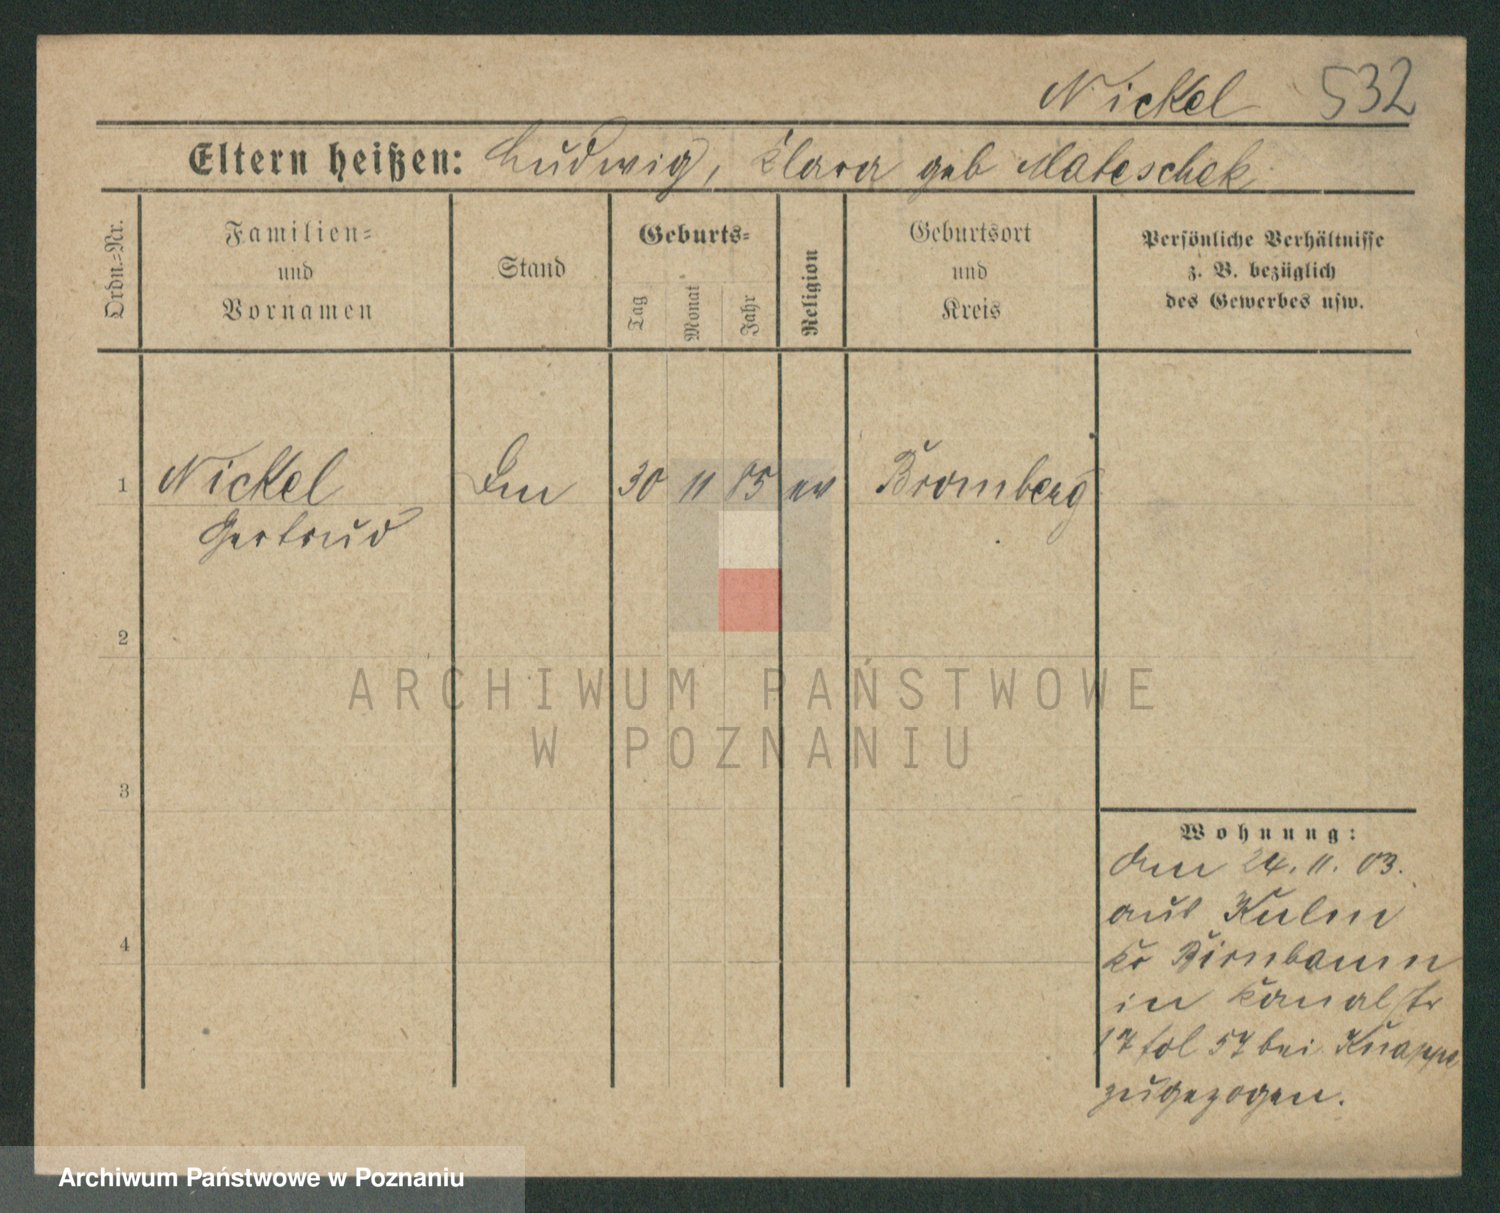 Nickel 532
Eltern heißen: Ludwig, Klara geb Mateschek
Ordn.=Nr.
Familien=
und
Vornamen
Stand
Geburts=
Tag
Monat
Jahr
Religion
Geburtsort
und
Kreis
Persönliche Verhältnisse
z. B. bezüglich
des Gewerbes usw.
1 Nickel 30 11 85 ev Bromberg
Gertrud
2
3
4
ARCHIWUM PAŃSTWOWE
W POZNANIU
Wohnung:
den 24. 11. 03.
aus Kulm
Kr Birnbaum
in Kanalstr
17 fol 57 bei Knappe
zugezogen.
Archiwum Państwowe w Poznaniu